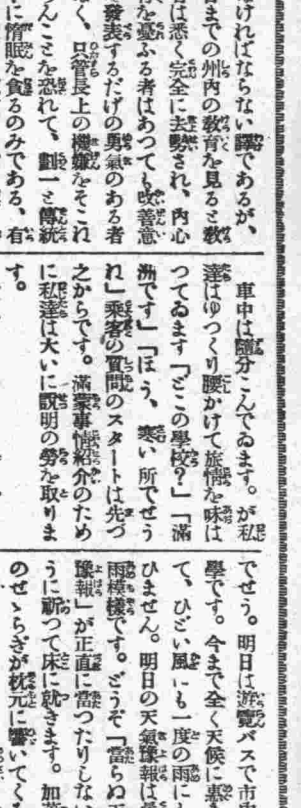 なければならない譯であるが、
日までの州内の教育を見ると教
者は悉く完全に去勢され、內心
を憂ふる者はあつても改善意
發表するだけの勇氣のある者
く、只管長上の機嫌をそこね
んことを恐れて、劃一と傳統
に惰眠を貪るのみである、有
車中は隨分こんでゐます。が私
達はゆつくり腰かけて旅情を味は
つてゐます「どこの學校?」「滿
洲です」「ほう、寒い所でせう
れ」乘客の質問のスタートは先づ
之からです。滿蒙事情紹介のため
に私達は大いに說明の勞を取りま
す。
でせう。明日は遊覽バスで市
學です。今まで全く天候に惠
て、ひどい風にも一度の雨に
ひません。明日の天氣豫報は
雨模樣です。どうぞ「當らぬ
豫報」が正直に當つたりしない
うに祈つて床に就きます。加
のせゝらぎが枕元に響いてく